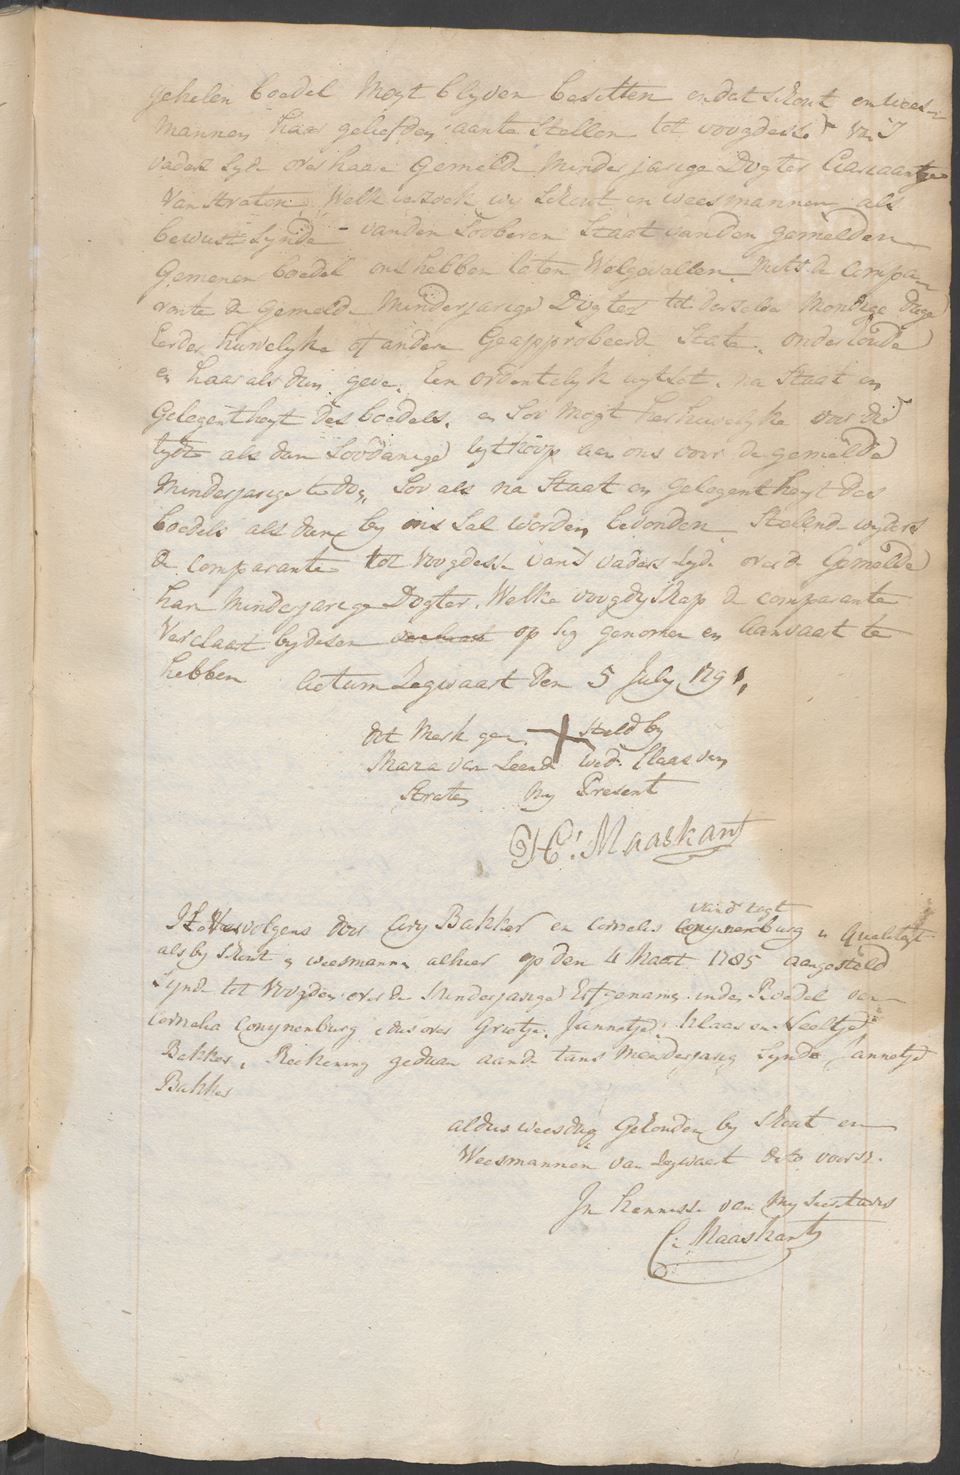 gehelen boedel mogt blyven besitten en dat schout en wees-
mannen haar geliefden aan te stellen tot voogdesse van 's
vaders zyde over haare gemelde minderjarige Dogter
van Straten, Welk verzoek wy schout en weesmannen als
bewust zynde van den soberen staat van den gemelden
gemenen boedel ons hebben laten welgevallen, mits de compa-
rante de gemelde minderjarige Dogter tot derselde mondige dage
eerder huwelyke of andere geapprobeerde state, onderhoude
en haar als dan geve, een ordentelyk uytset, na staat en
gelegentheyt des boedels, en soo mogt herhuwelyke voor die
tyd als dan soodanige uytkoop aan ons voor de gemelde
minderjarige te doen, soo als na staat en gelegentheyt des
boedels als dan by ons sal worden bevonden, stellende wyders
de comparante tot voogdesse van 's vaders zyde over de gemelde
hare minderjarige Dogter, Welke voogdyschap de comparante
verclaart by desen op sig genomen en aanvaart te
hebben Actum Zegwaart den 5 July 1791,
dit merk gen + steld by
Maria van Leend wed. Claas van
Straten My Present
H: Maaskant
vand togt
volgens door Ary Bakker en Cornelis Conynenburg in qualiteyt
als by schout en weesmannen alhier op den 4 Maart 1785 aangesteld
zynde tot voogden over de minderjarige Erfgenamen in den Boedel van
Cornelia Conynenburg, dus over Grietje, Jannetje, Klaas en Neeltje
Bakker, Reekening gedaan aan de tans meerderjarig zynde Jannetje
Bakker
aldus weesdag gehouden by schout en
Weesmannen van Zegwaart dato voorsz.
In kennisse van my secretaris
C: Maaskant